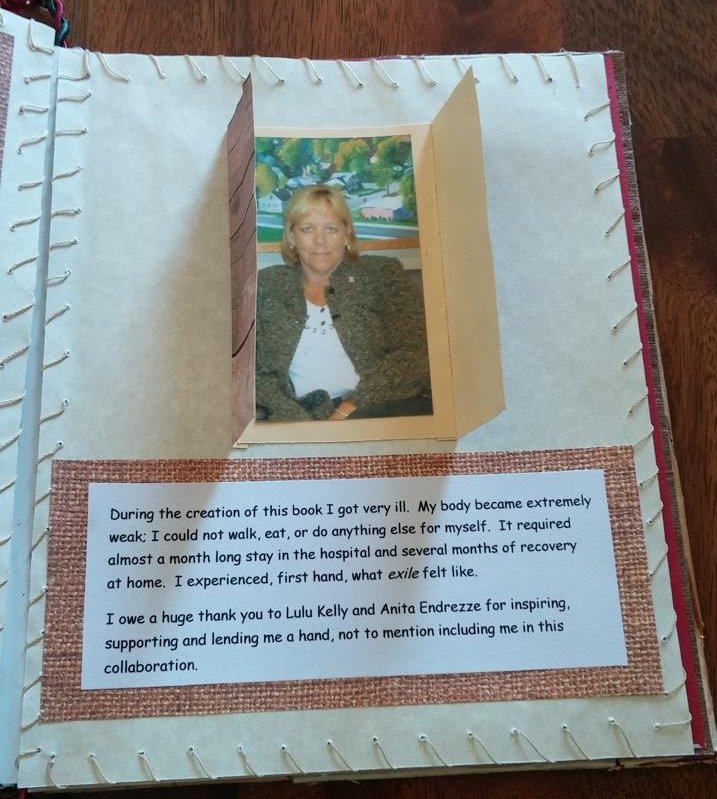 During the creation of this book I got very ill. My body became extremely
weak; I could not walk, eat, or do anything else for myself. It required
almost a month long stay in the hospital and several months of recovery
at home. I experienced, first hand, what exile felt like.
I owe a huge thank you to Lulu Kelly and Anita Endrezze for inspiring,
supporting and lending me a hand, not to mention including me in this
collaboration.